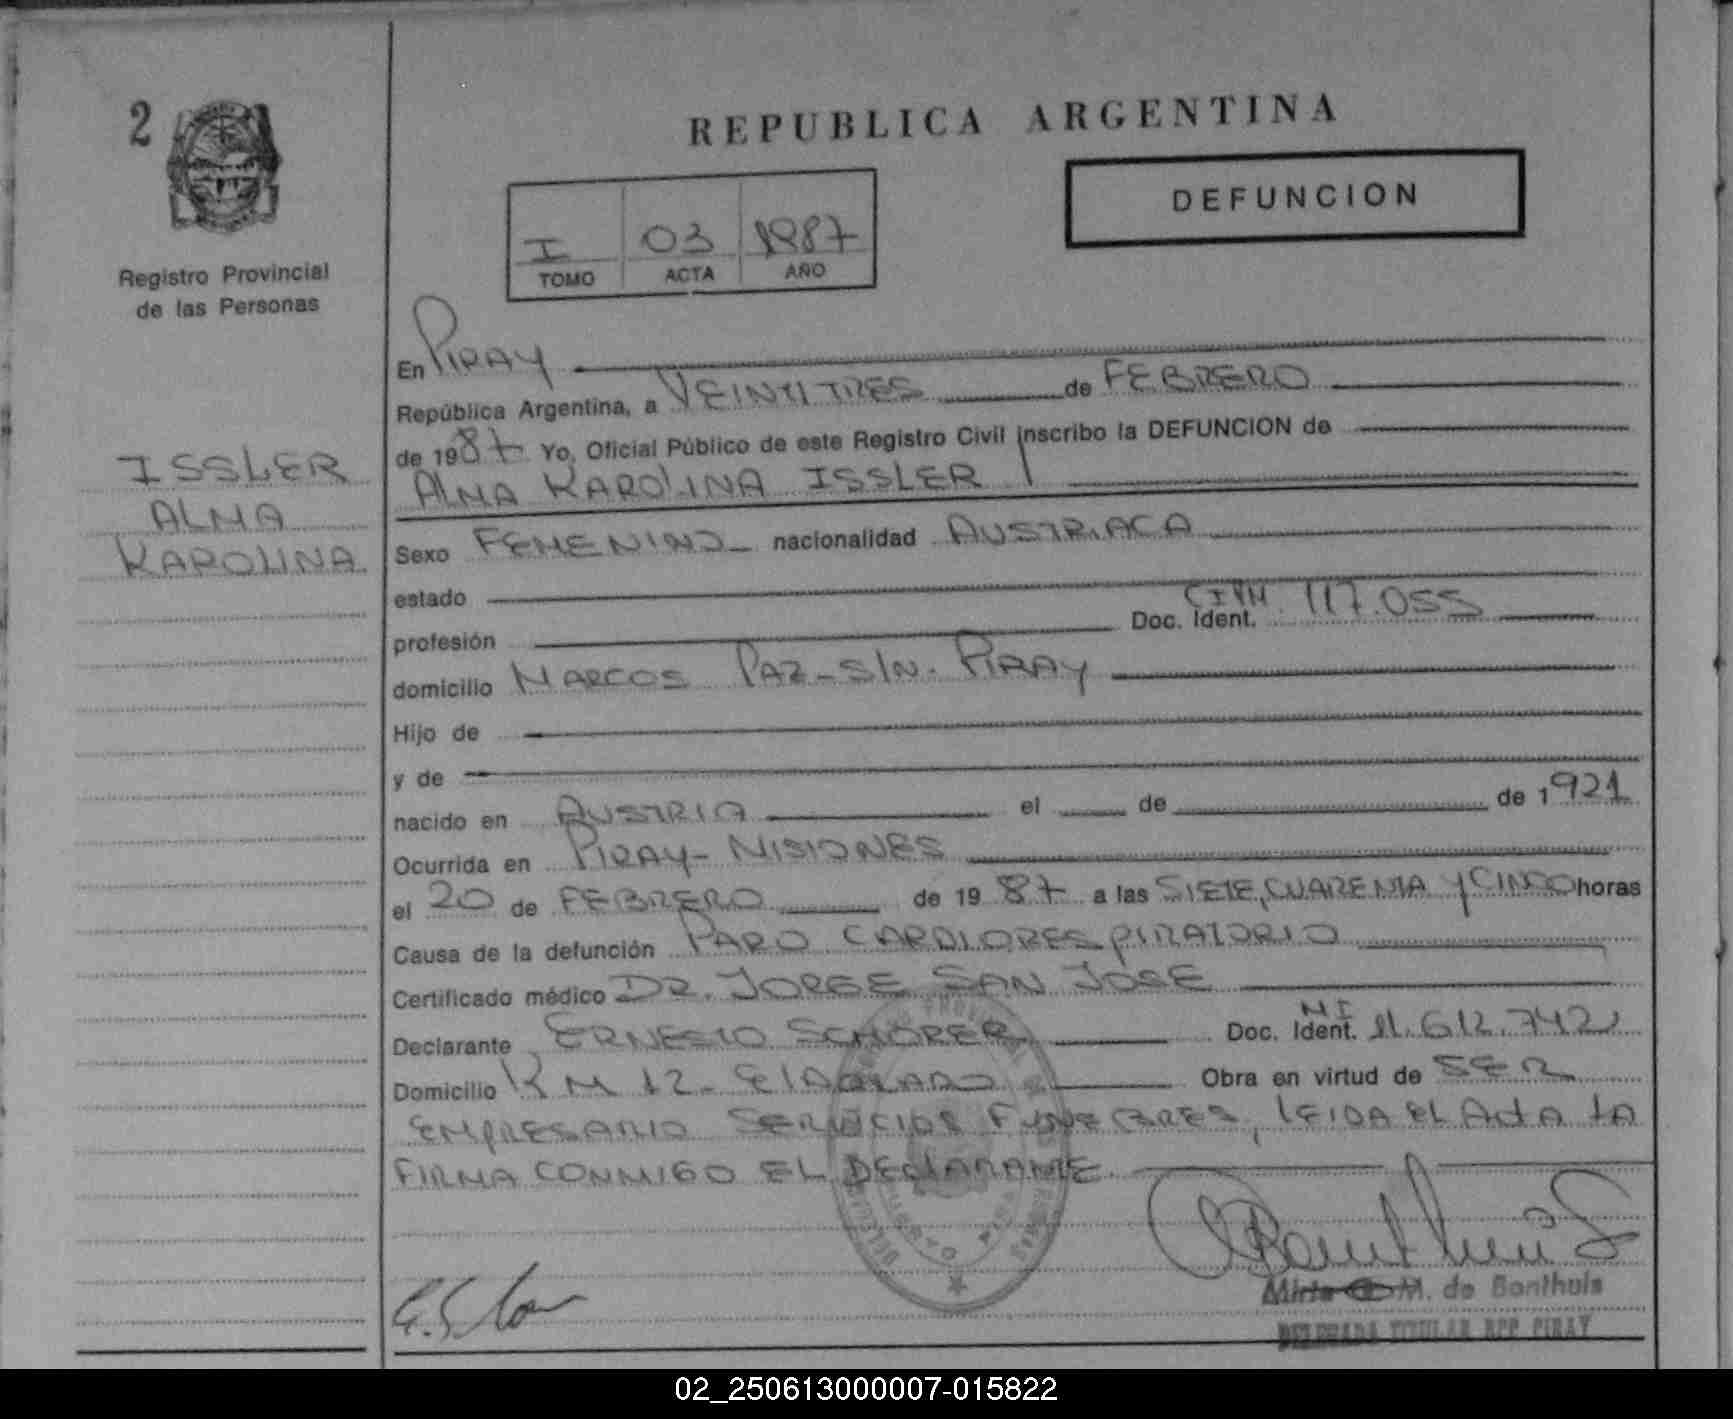 2
REPUBLICA ARGENTINA
DEFUNCION
I 03 1987
TOMO ACTA AÑO
Registro Provincial
de las Personas
ISSLER
ALMA
KAROLINA
En PIRAY
República Argentina, a VEINTITRES de FEBRERO
de 1987 Yo, Oficial Público de este Registro Civil inscribo la DEFUNCION de
ALMA KAROLINA ISSLER
Sexo FEMENINO nacionalidad AUSTRIACA
estado
profesión Doc. Ident. 117.055
domicilio MARCOS PAZ-S/N. PIRAY
Hijo de
y de
nacido en AUSTRIA el de de 1921
Ocurrida en PIRAY-MISIONES
el 20 de FEBRERO de 1987 a las SIETE, CUARENTA Y CINCO horas
Causa de la defunción PARO CARDIORESPIRATORIO
Certificado médico DR. JORGE SAN JOSE
Declarante ERNESTO SCHORER Doc. Ident. MI 11.612.742
Domicilio KM 12- ElDORADO Obra en virtud de SER
EMPRESARIO SERVICIOS FUNEBRES, LEIDA EL ActA LA
FIRMA CONMIGO EL DECLARANTE.
M. de Bonthuis
DELEGADA TITULAR RPP PIRAY
02_250613000007-015822